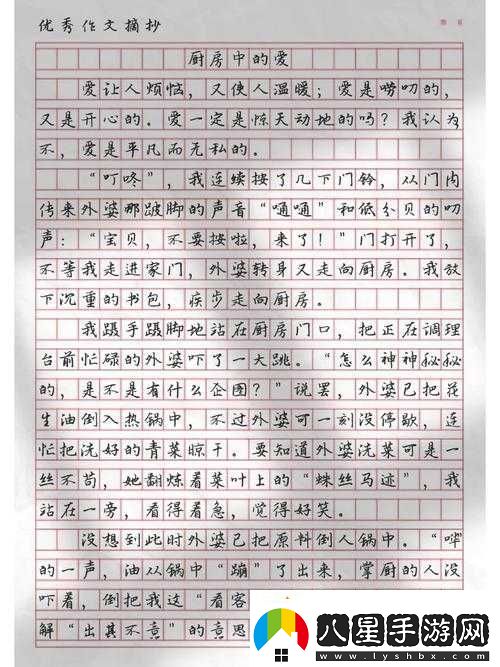 优秀作文摘抄
厨房中的爱
爱让人烦恼，又使人温暖；爱是唠叨的，
又是开心的。爱一定是惊天动地的吗？我认为
不，爱是平凡而无私的。
“叮咚”，我连续按了几下门铃，从门内
传来外婆那跛脚的声音“嗵嗵”和低分贝的叨
声：“宝贝，不要按啦，来了！”门打开了，
不等我走进家门，外婆转身又走向厨房。我放
下沉重的书包，疾步走向厨房。
我蹑手蹑脚地站在厨房门口，把正在调理
台前忙碌的外婆吓了一大跳。“怎么神神秘秘
的，是不是有什么企图？”说罢，外婆已把花
生油倒入热锅中，不过外婆可一刻没停歇，连
忙把洗好的青菜晾干。要知道外婆洗菜可是一
丝不苟，她翻炼着菜叶上的“蛛丝马迹”，我
站在一旁，看得着急，觉得好笑。
没想到此时外婆已把原料倒人锅中。“哗”
的一声，油从锅中“蹦”了出来，掌厨的人没
吓着，倒把我这“看客
解“出其不意”的意思
八星手游网
www.lyshbx.com